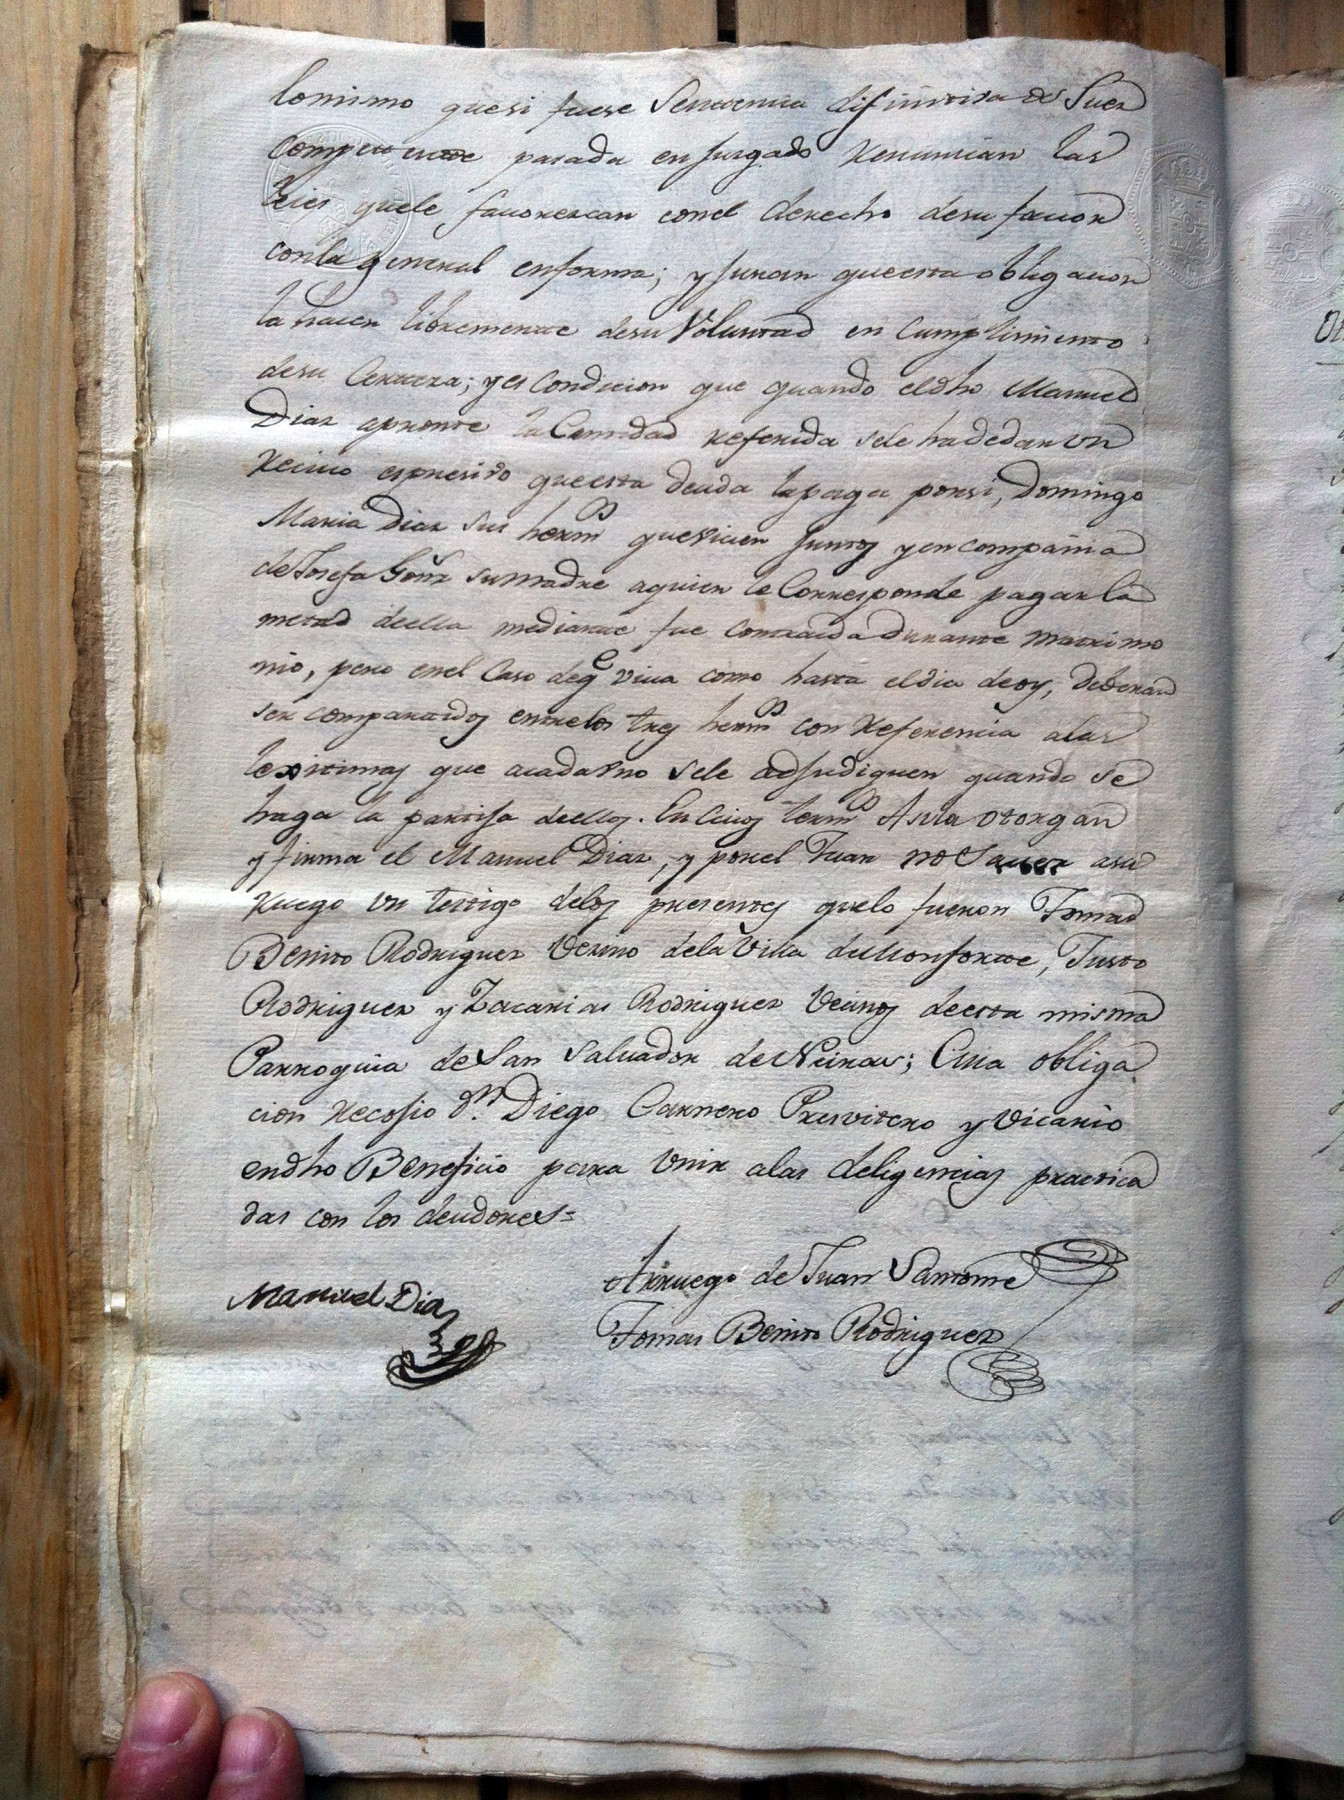 lomismo quesi fuese Sentencia difinitiba de Juez
Competente pasada en Jurgado Renuncian las
leies quele fauorezcan conel derecho desu fauor
conla general enforma; y Juran que esta obligacion
la hacen libremente desu Voluntad en Cumplimiento
desu Certeza; y es Condicion que quando eldho Manuel
Diaz apronte la Cantidad referida sele hadedar un
Reciuo espresibo que esta deuda la paga porsi, Domingo
Maria Diaz sus hermos queviven Juntos y en compañia
de Josefa Gonz su Madre aquien le Corresponde pagar la
metad deella mediante fue Contraida durante matrimo
nio, pero enel Caso deqe viua como hasta eldia deoy, deberan
ser compartidos entrelos tres hermos con Referencia alas
lexitimas que acada uno sele adjudiquen quando se
haga la partija deellos. En Cuios termos Asila otorgan
y firma el Manuel Diaz, y porel Juan no Sauer asu
Ruego un testigo delos presentes quelo fueron Tomas
Benito Rodriguez Vecino dela Villa de Monforte, Justo
Rodriguez y Zacarias Rodriguez Vecinos deesta misma
Parroquia de San Saluador de Neiras; Cuia obliga
cion Recojio Dn. Diego Carnero Presvitero y Vicario
endho Beneficio para Unir alas deligencias practica
das con los deudores=
Arruego de Juan Santome
Manuel Diaz
Tomas Benito Rodriguez